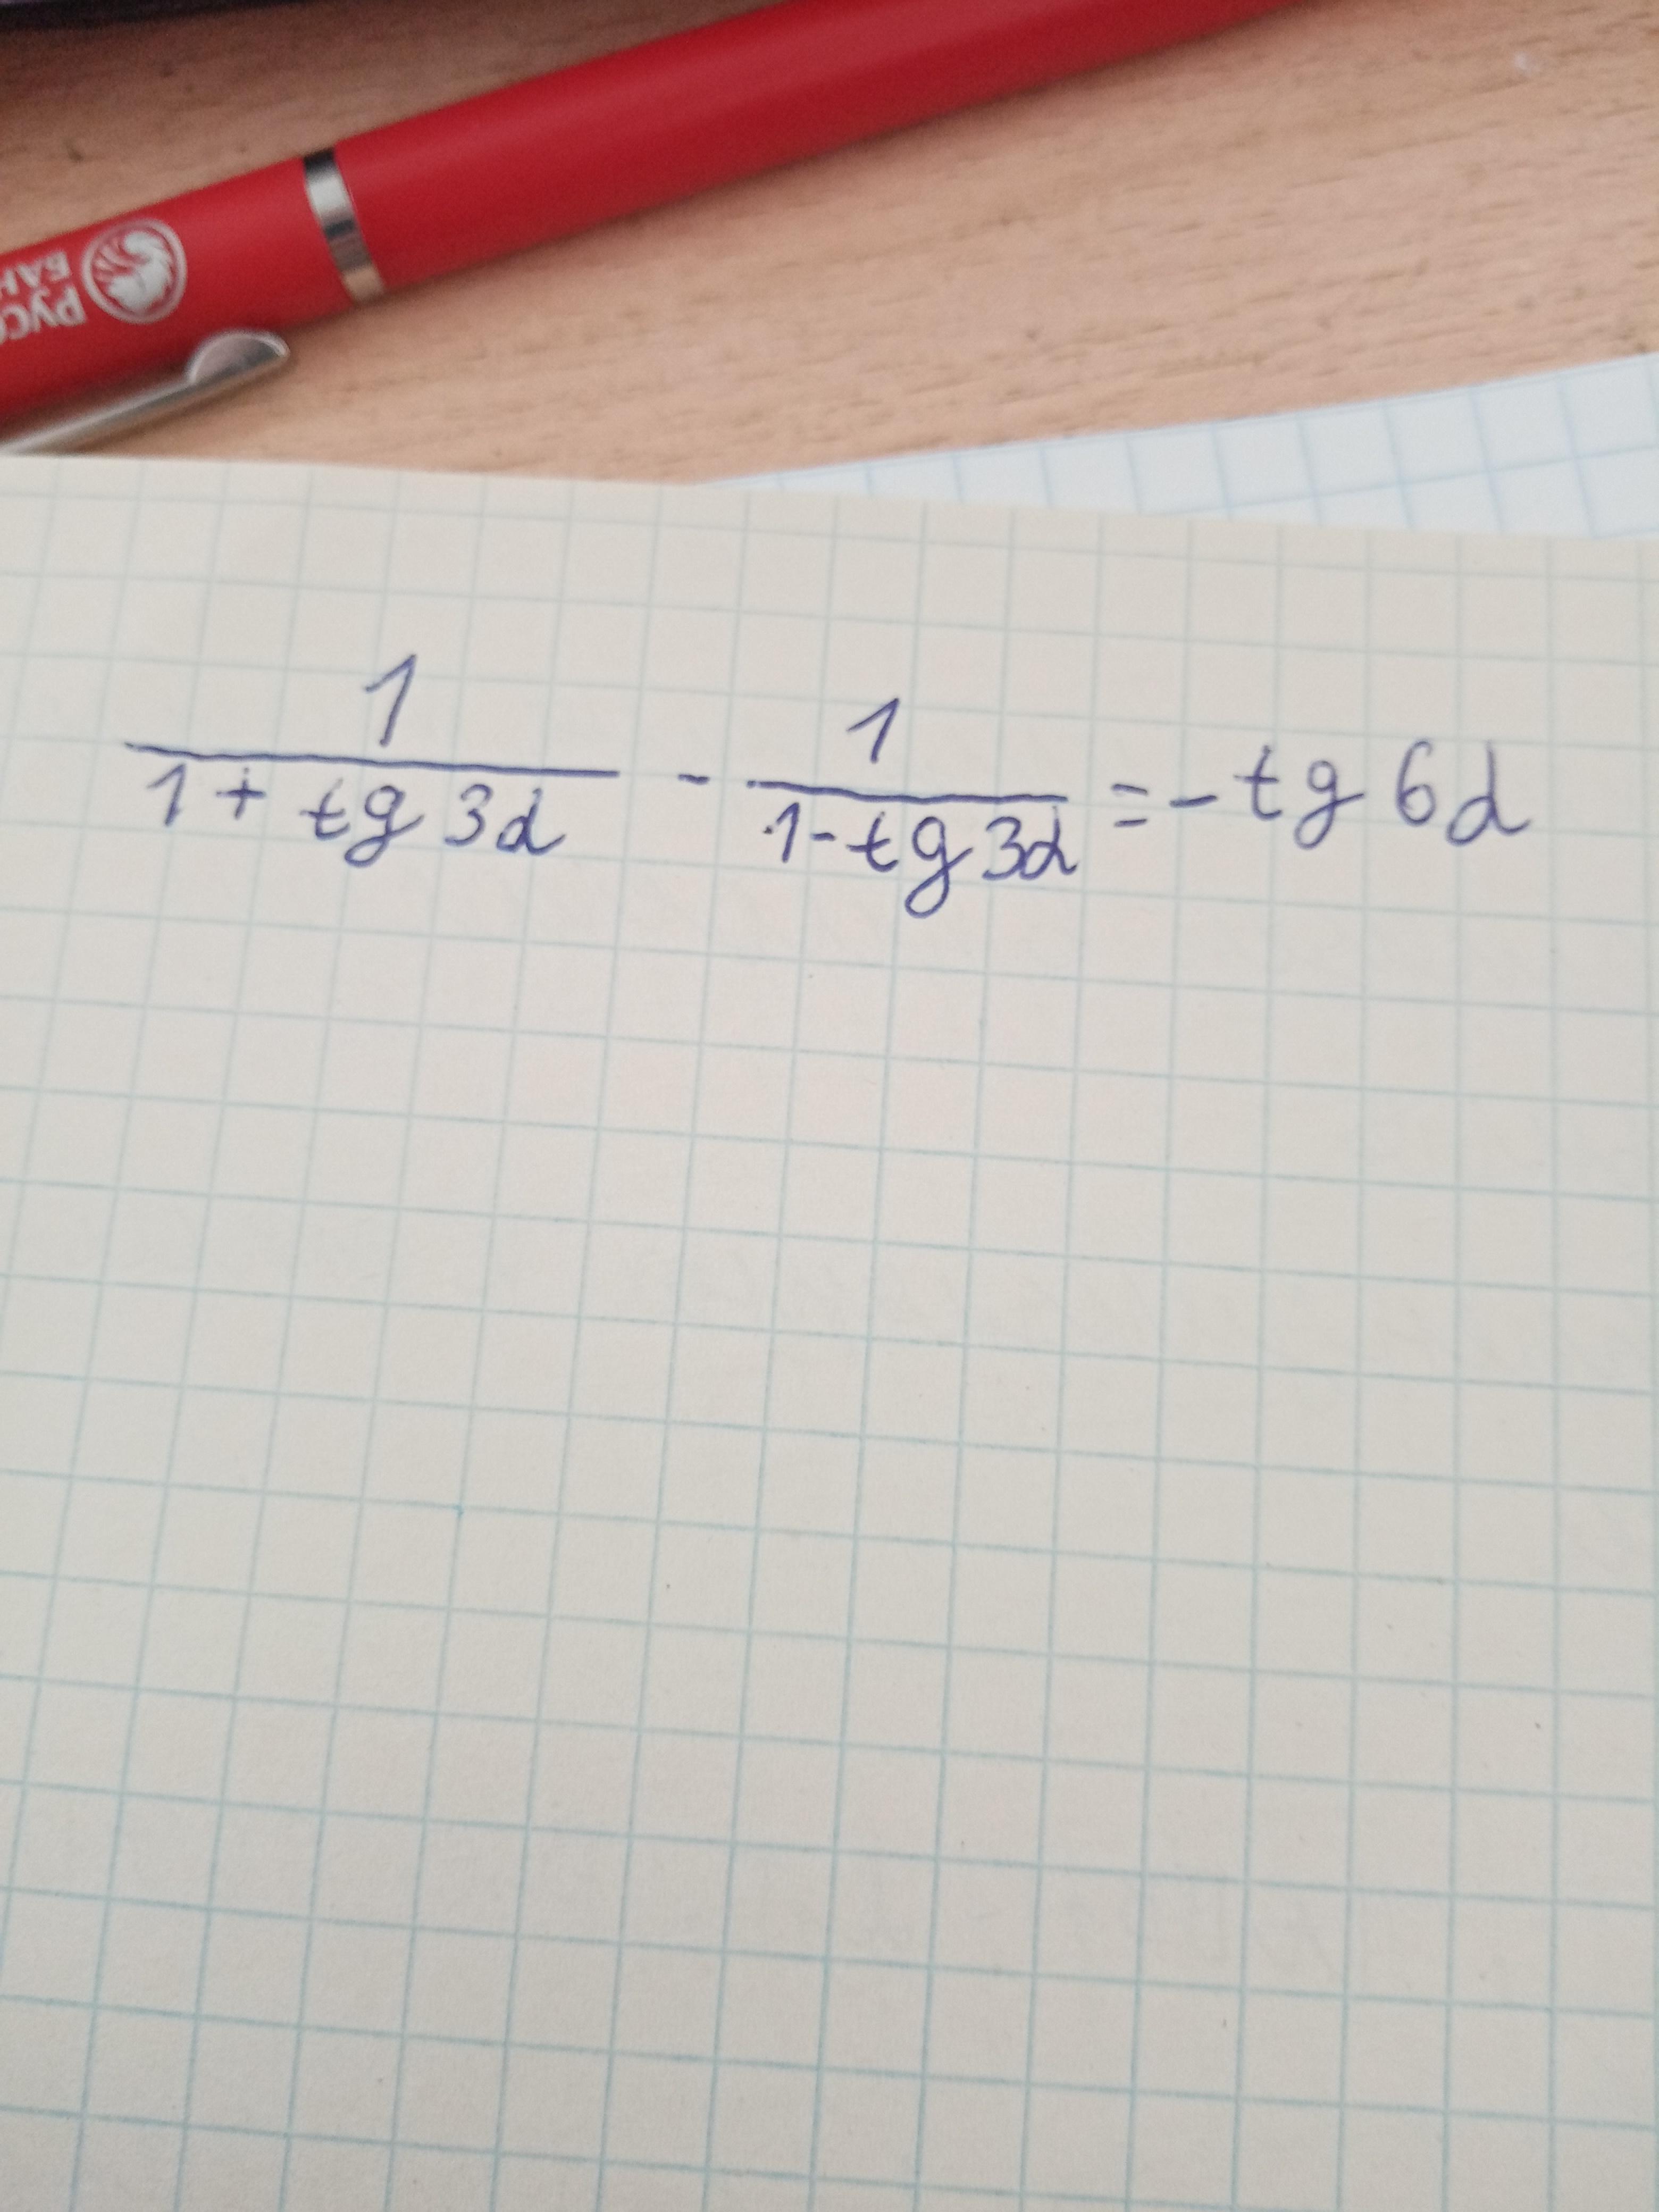 РУСС
БАН
1/(1 + tg 3α) - 1/(1 - tg 3α) = - tg 6α